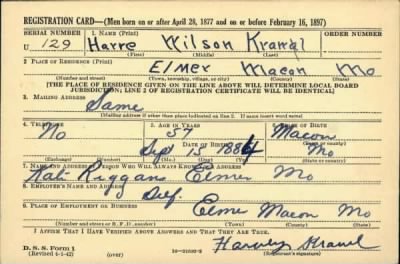 REGISTRATION CARD—(Men born on or after April 28, 1877 and on or before February 16, 1897)
SERIAL NUMBER 1. NAME (Print) ORDER NUMBER
U 129 Harre Wilson
(First) (Middle) (Last)
2. PLACE OF RESIDENCE (Print)
Elmer Macon Mo
(Number and street) (Town, township, village, or city) (County) (State)
[THE PLACE OF RESIDENCE GIVEN ON THE LINE ABOVE WILL DETERMINE LOCAL BOARD
JURISDICTION; LINE 2 OF REGISTRATION CERTIFICATE WILL BE IDENTICAL]
3. MAILING ADDRESS
Same
[Mailing address if other than place indicated on line 2. If same insert word same]
4. TELEPHONE 5. AGE IN YEARS 6. PLACE OF BIRTH
No 57 Macon
DATE OF BIRTH
Sept 15 1884 Mo
(Exchange) (Number) (Mo.) (Day) (Yr.) (State or country)
7. NAME AND ADDRESS OF PERSON WHO WILL ALWAYS KNOW YOUR ADDRESS
Kati Elmer Mo
8. EMPLOYER'S NAME AND ADDRESS
Self.
9. PLACE OF EMPLOYMENT OR BUSINESS
Elmer Macon Mo
(Number and street or R. F. D. number) (Town) (County) (State)
I AFFIRM THAT I HAVE VERIFIED ABOVE ANSWERS AND THAT THEY ARE TRUE.
D. S. S. Form 1
(Revised 4-1-42) (over) Harvey
(Registrant's signature)